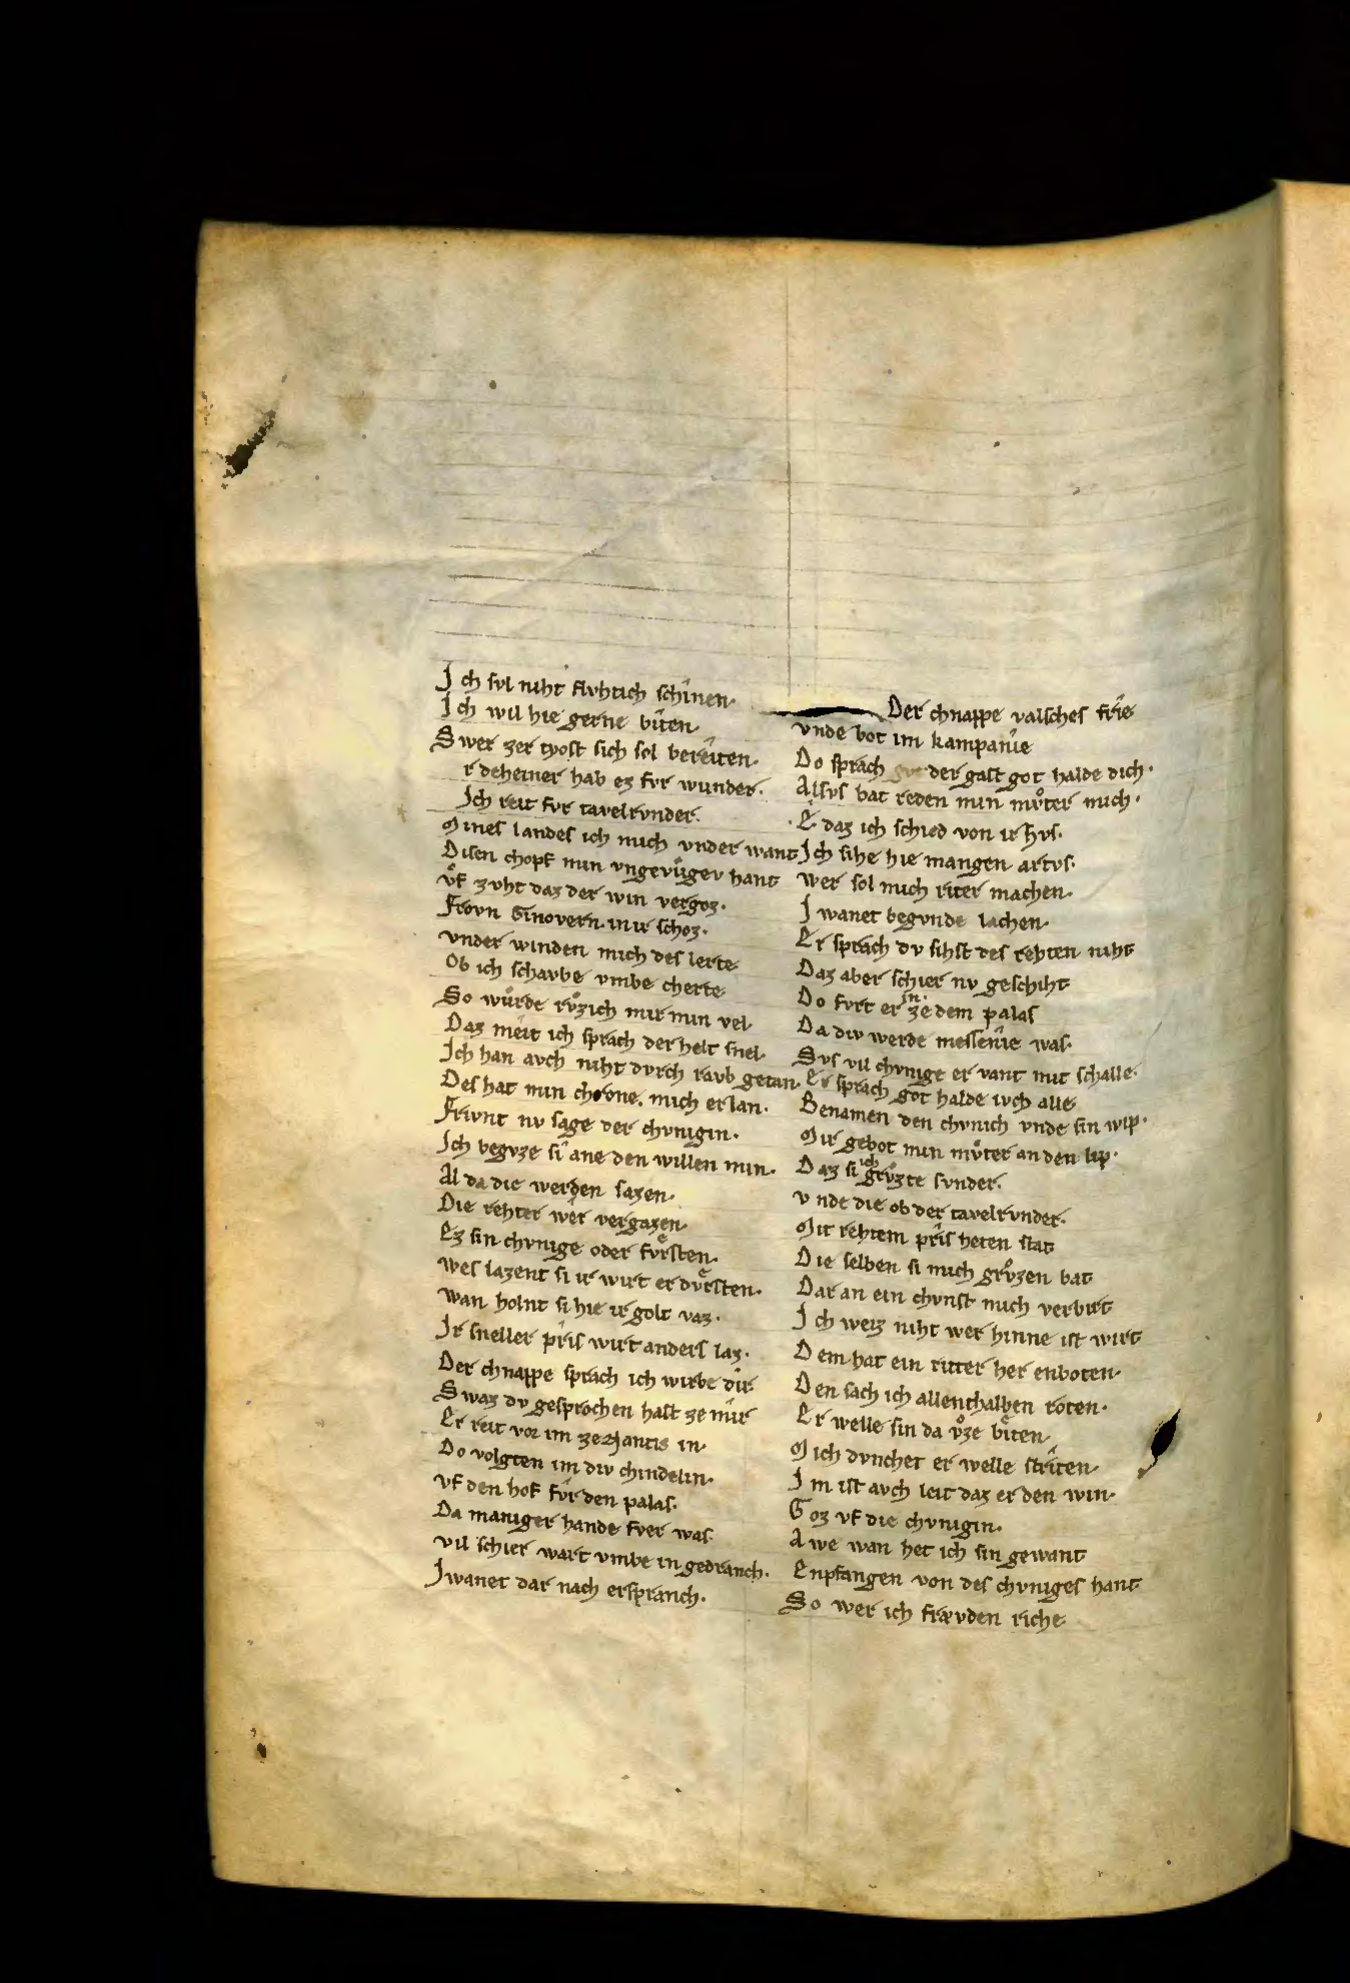 Ich sol niht flvhtich schînen·
Ich wil hie gerne bîten·
Swer zer tyost sich sol bereîten·
r deheiner hab ez fvr wunder·
Ich reit fvr tavelrvnder·
Mines landes ich mich vnder want
Disen chopf min vngevuͤgev hant
vͦf zvht daz der win vergoz·
Frovn Ginovern in ir schoz·
vnder winden mich des lerte
Ob ich schavbe vmbe cherte
So wuͤrde rvͦzich mir min vel·
Daz meit ich sprach der helt snel·
Ich han avch niht dvrch ravb getan·
Des hat min chrone mich erlan·
Frivnt nv sage der chvnigin·
Ich begvze sî ane den willen min·
Al da die werden sazen·
Die rehter wêr vergazen·
Ez sin chvnige oder fvͤrsten·
wes lazent si ir wirt er dvͤrsten·
wan holnt si hie ir golt vaz·
Ir sneller prîs wirt anders laz·
Der chnappe sprach ich wirbe dîr
Swaz dv gesprochen hast ze mîr
Er reit vor im ze Nantis in·
Do volgten im div chindelin·
vf den hof fvr den palas·
Da maniger hande fver was·
vil schier wart vmbe in gedranch·
Iwanet dar nach erspranch·
Der chnappe valsches frîe
vnde bot im kampanîe
Do sprach der gast got halde dich·
Alsvs bat reden min mvͦter mich·
E daz ich schied von ir hvs·
Ich sihe hie mangen artvs·
wer sol mich riter machen·
Iwanet begvnde lachen·
Er sprach dv sihst des rehten niht
Daz aber schier nv geschiht
Do fvrt er in ze dem palas
Da div werde messenîe was·
Svs vil chvnige er vant mit schalle·
Er sprach got halde ivch alle
Benamen den chvnich vnde sin wip·
Mir gebot min mvͦter an den lip·
Daz si ich grvͦzte svnder·
vnde die ob der tavelrvnder·
Mit rehtem prîs heten stat
Die selben si mich grvͦzen bat
Dar an ein chvnst mich verbirt
Ich weiz niht wer hinne ist wirt
Dem hat ein ritter her enboten·
Den sach ich allenthalben roten·
Er welle sin da vͦze bîten·
Mich dvnchet er welle strîten·
Im ist avch leit daz er den win·
Goz vf die chvnigin·
Awe wan het ich sin gewant
Enpfangen von des chvniges hant
So wer ich frævden riche